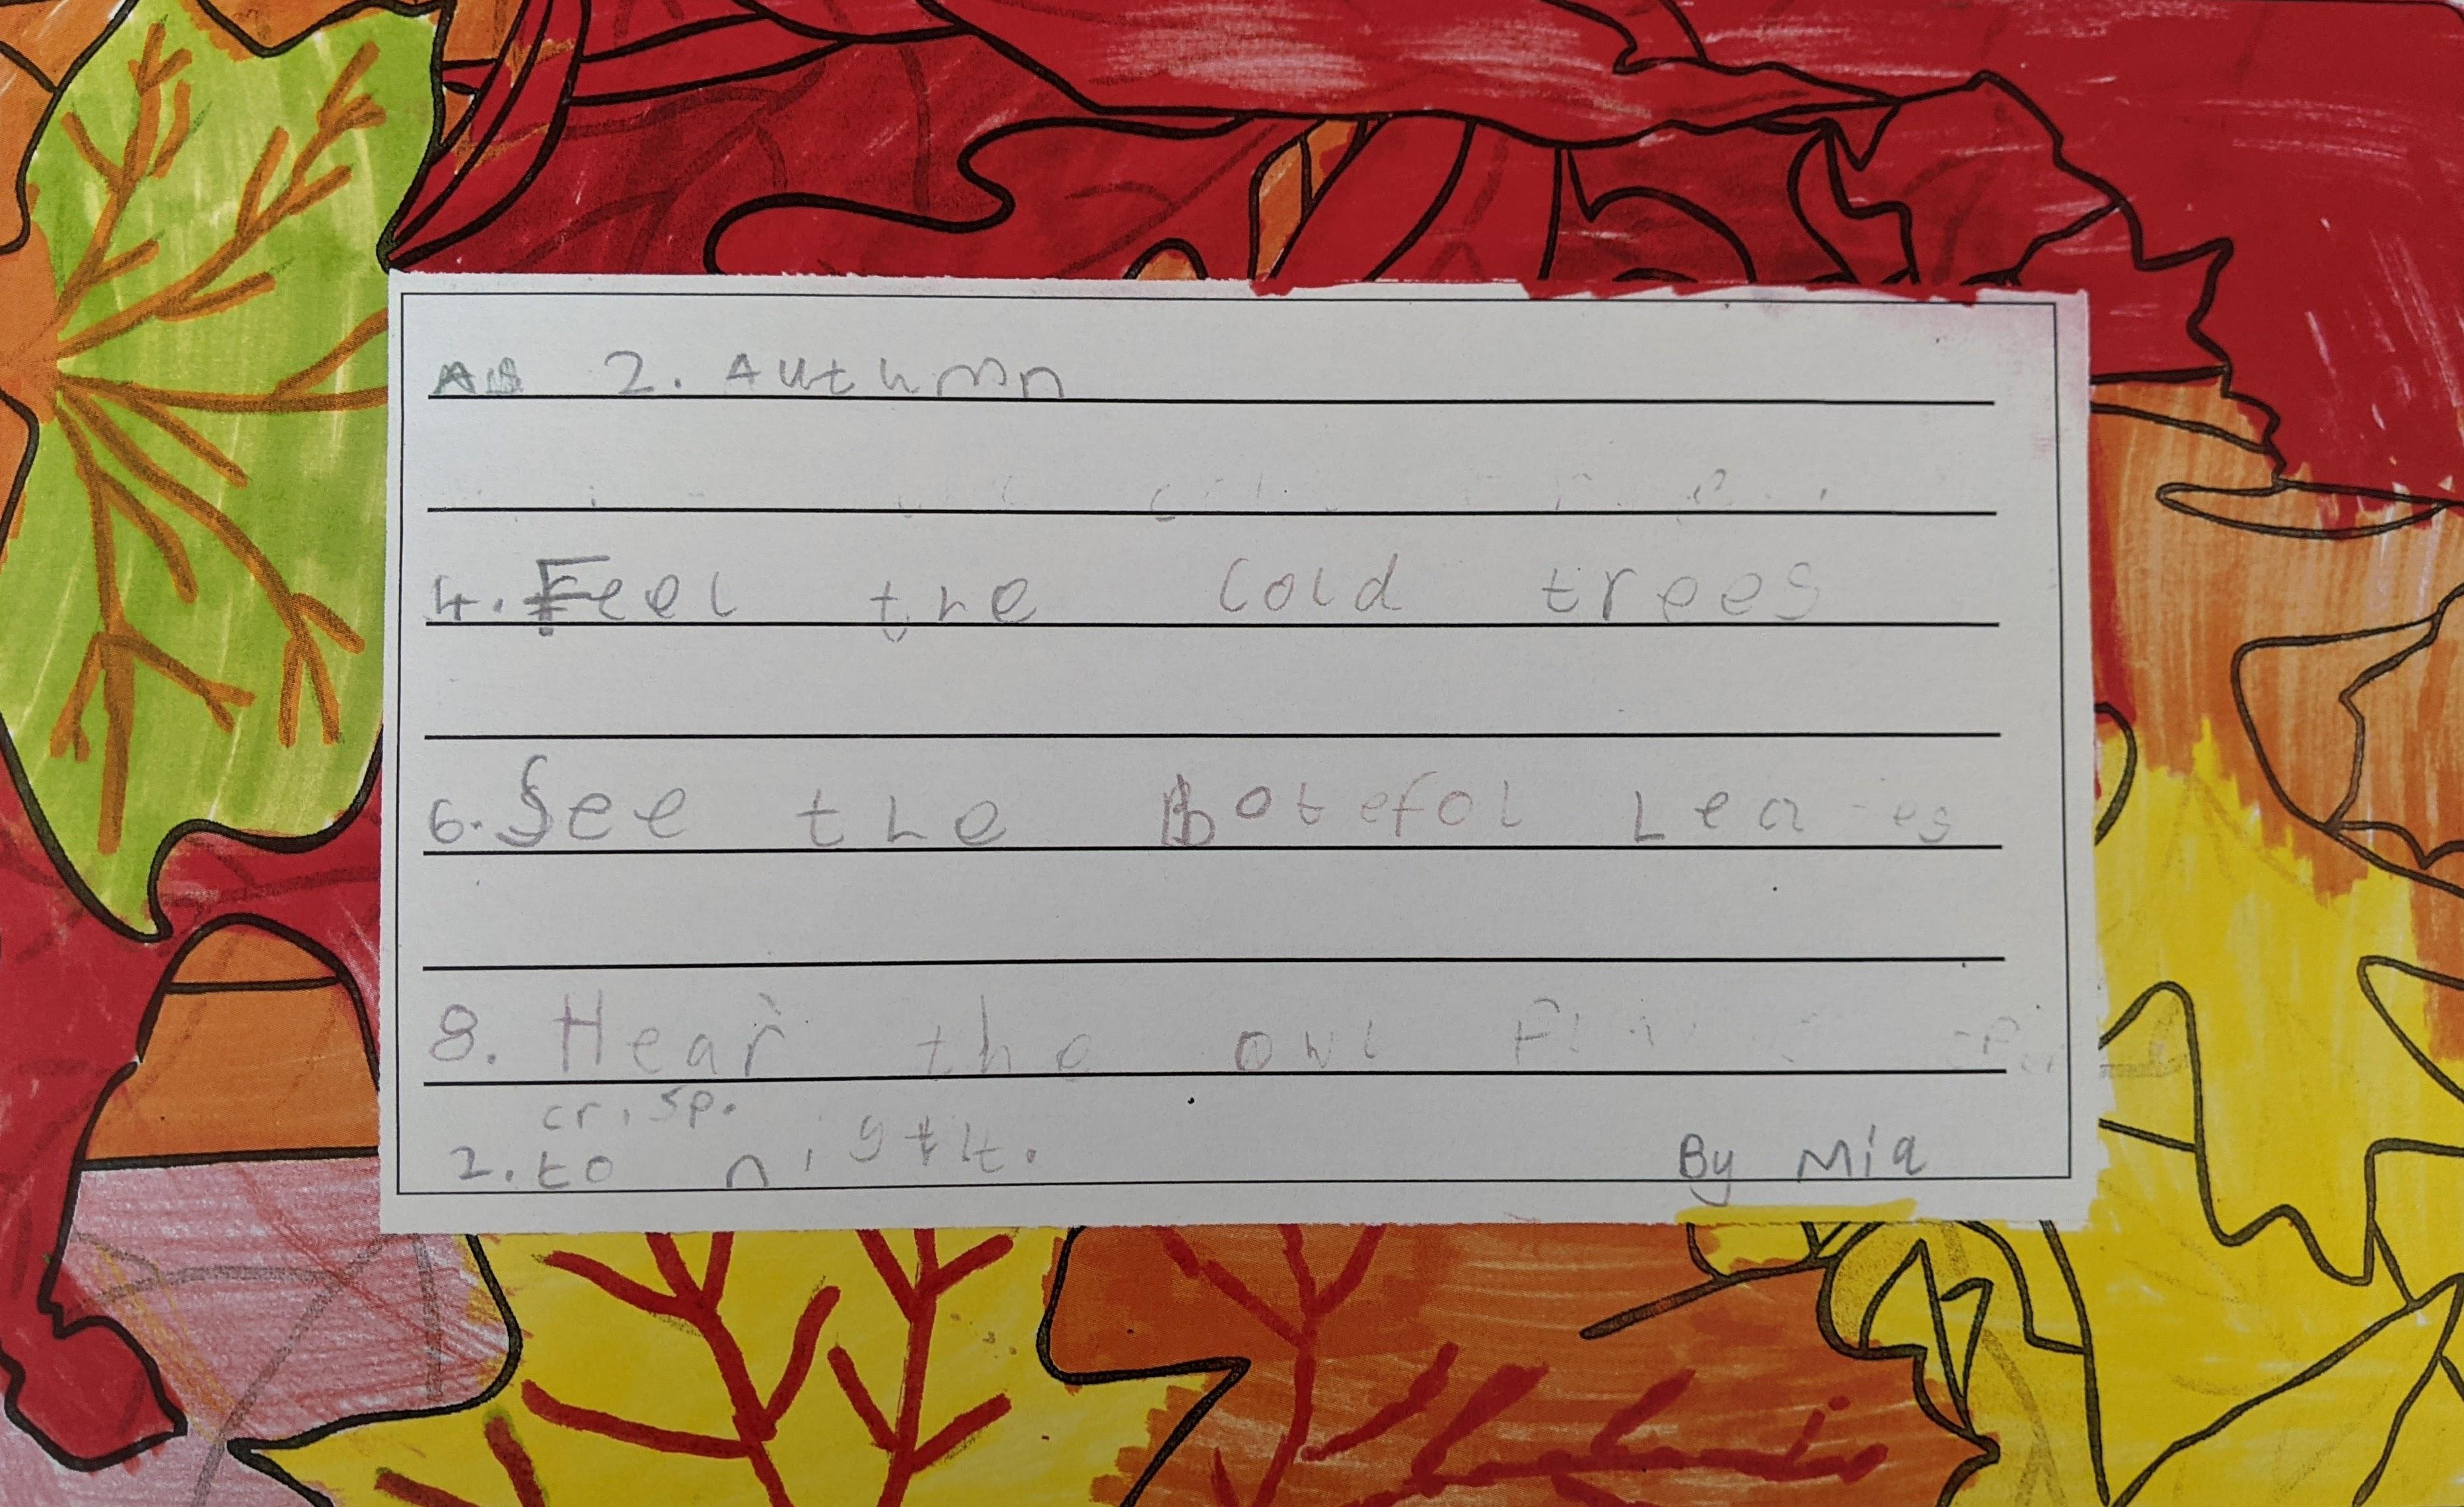 2. Authmn
4. Feel the Cold trees
6. See the Botefol Lea es
8. Hear the owl
crisp.
2. to nigtht.
By Mia